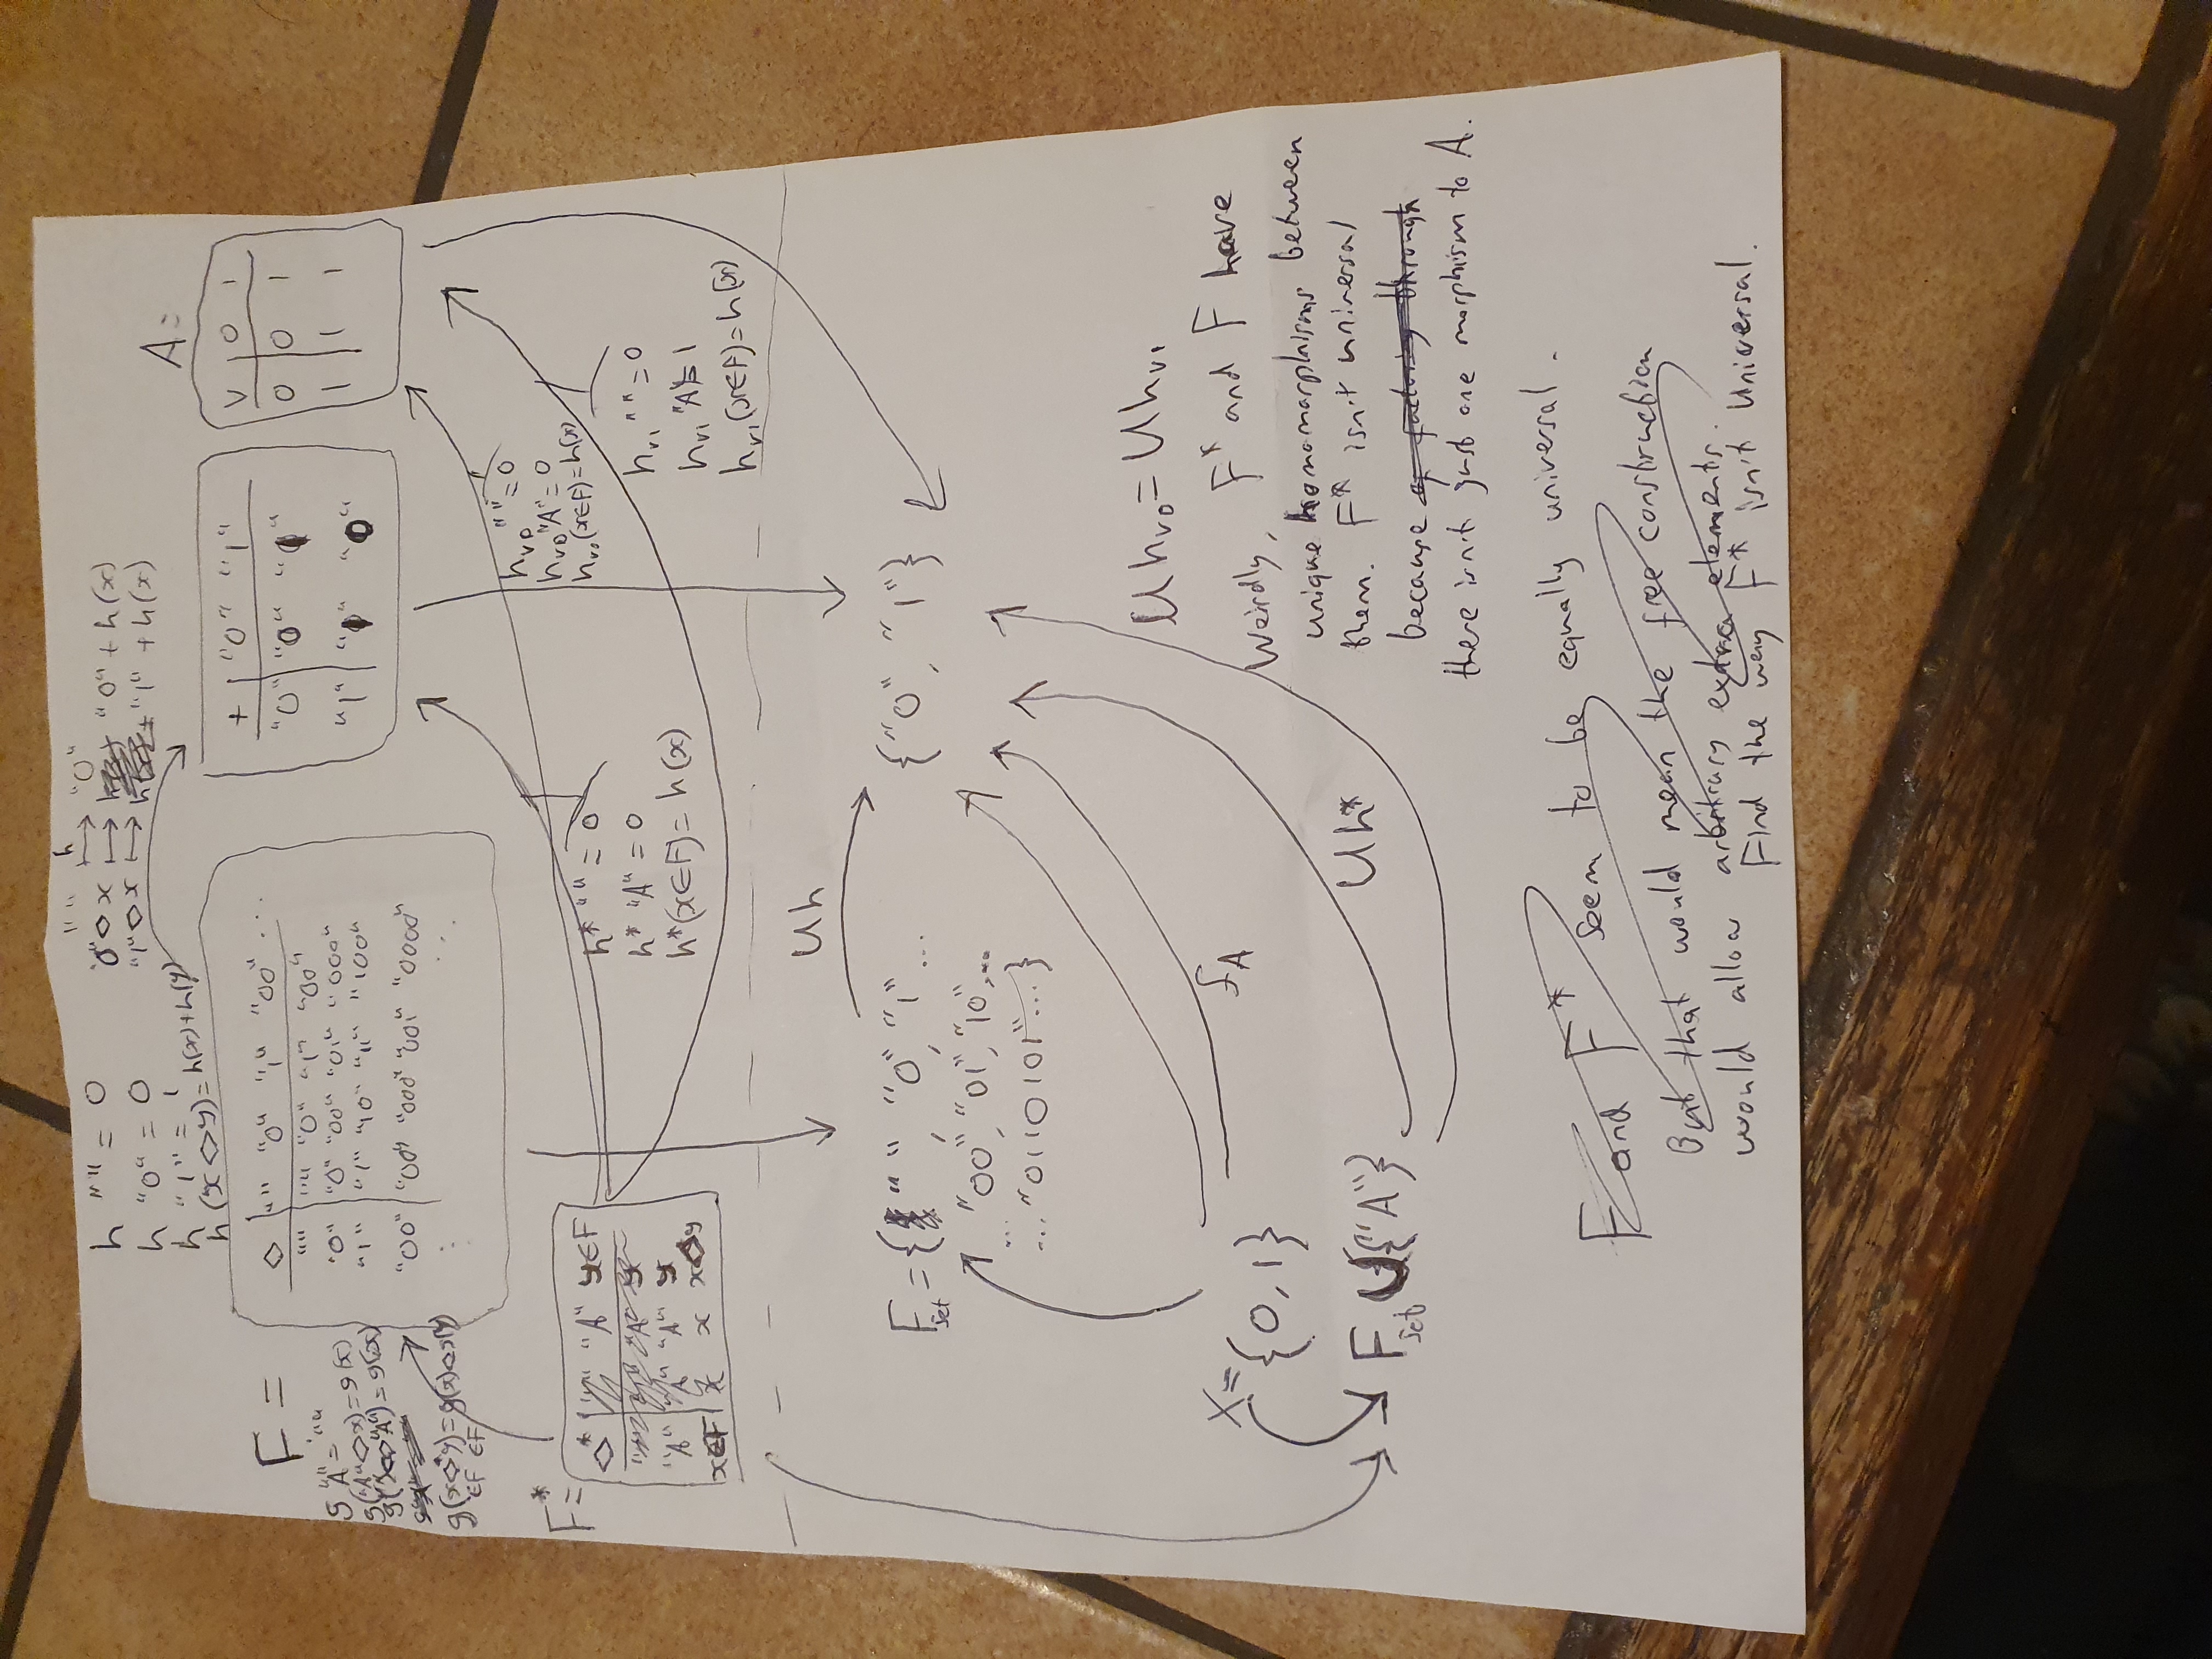 h "" = 0
h "0" = 0
h "1" = 1
h (x◇y) = h(x)+h(y)
"" ⟼ʰ "0"
"0"◇x ⟼ "0" + h(x)
"1"◇x ⟼ "1" + h(x)
A =
F =
◇ | "" "0" "1" "00" ...
"" | "" "0" "1" "00"
"0" | "0" "00" "01" "000"
"1" | "1" "10" "11" "100"
"00" | "00" "000" "001" "0000"
+ | "0" "1"
"0" | "0" "1"
"1" | "1" "0"
V | 0 1
0 | 0 1
1 | 1 1
g "A" = ""
g("A"◇x) = g(x)
g(x◇"A") = g(x)
g(x◇*y) = g(x)◇g(y)
∈F ∈F
F* =
◇* | "" "A" y∈F
"" | "" "A" y
"A" | "A" "A" y
x∈F | x x x◇y
h* "" = 0
h* "A" = 0
h*(x∈F) = h(x)
hv0 "" = 0
hv0 "A" = 0
hv0(x∈F) = h(x)
hv1 "" = 0
hv1 "A" = 1
hv1(x∈F) = h(x)
Uh
Fset = { "", "0", "1" ...
... "00", "01", "10", ...
... "0110101" ... }
{"0", "1"}
fA
X = {0, 1}
Fset ∪ {"A"}
Uh*
Uhv0 = Uhv1
Weirdly, F* and F have
unique homomorphisms between
them. F* isn't universal
because of factoring through
there isn't just one morphism to A.
F and F* seem to be equally universal.
But that would mean the free construction
would allow arbitrary extra elements.
Find the way F* isn't universal.